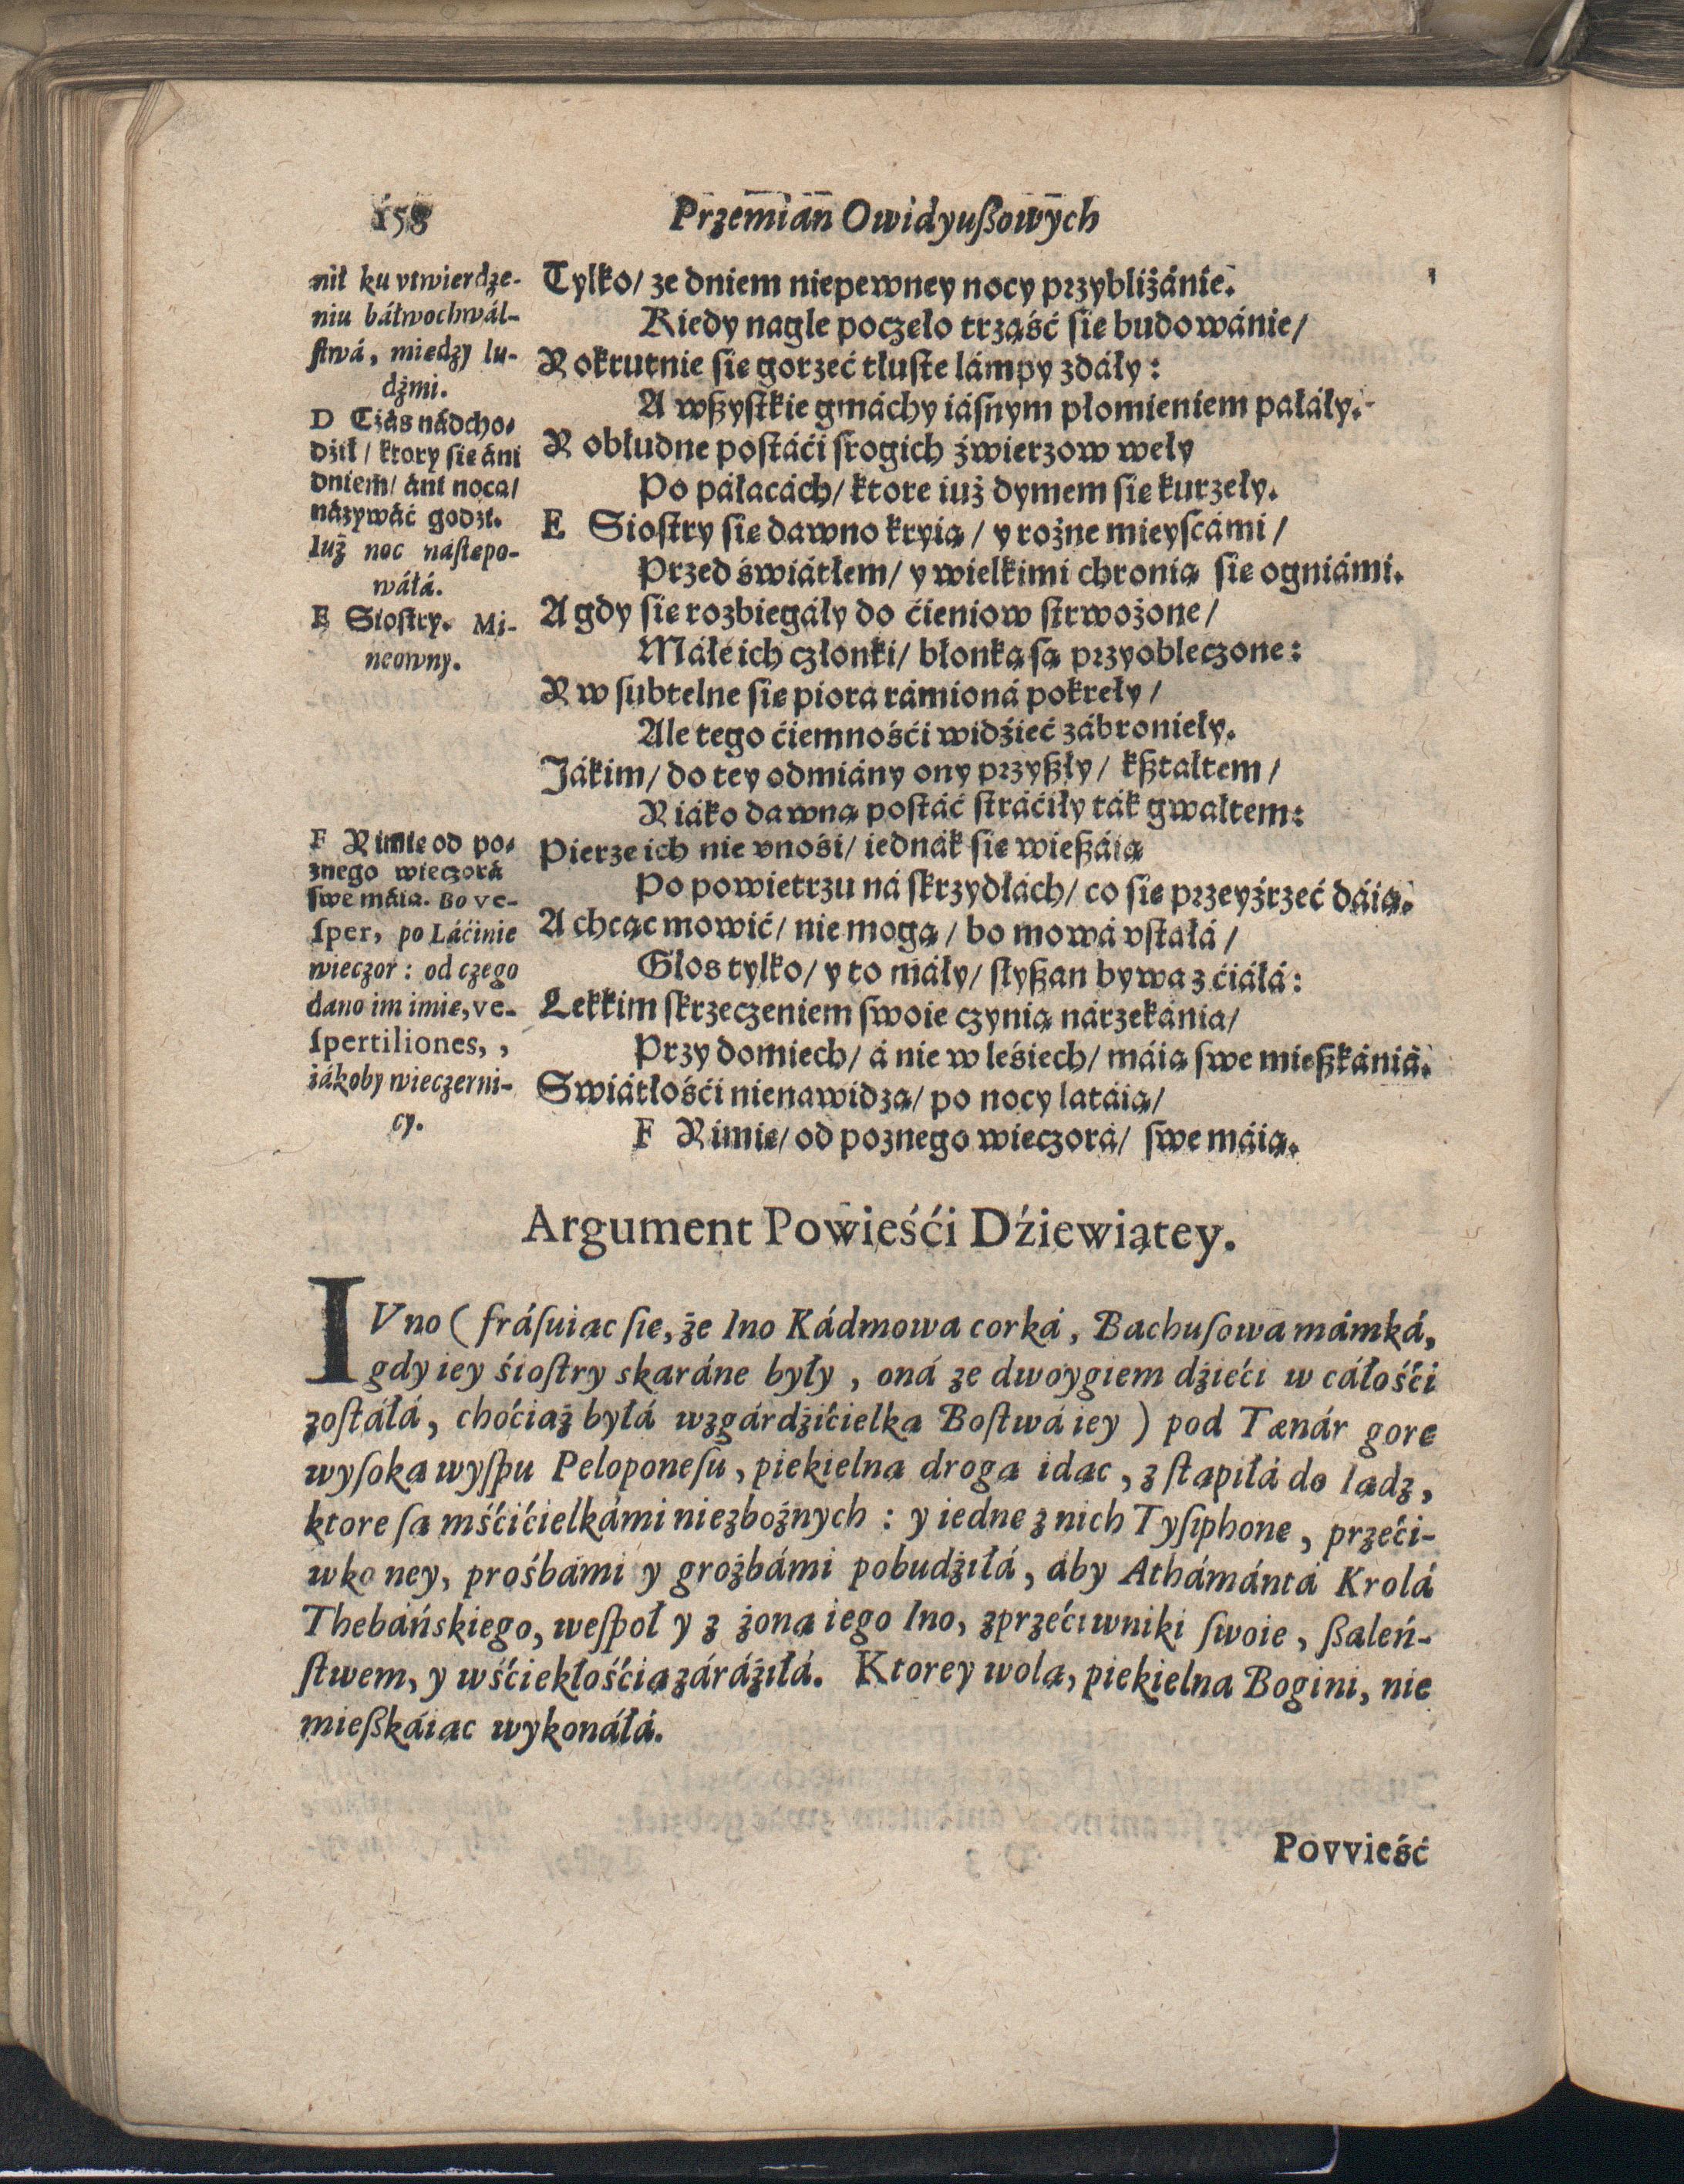 158
Przemian Owidyuſzowych
nił ku vtwierdze-
niu báłwochwál-
ſtwá, miedzy lu-
dźmi.
D Cżás nádcho-
dźił / ktory ſie áni
dniem / áni nocą /
názywáć godzi.
Iuż noc náſtepo-
wáłá.
E Sioſtry. Mi-
neowny.
F Y imie od po-
znego wieczorá
ſwe máią. Bo ve-
ſper, po Láćinie
wieczor : od czego
dano im imie, ve-
ſpertiliones, ,
iákoby wieczerni-
cy.
Tylko / ze dniem niepewney nocy przybliżánie.
Kiedy nagle poczeło trząść ſie budowánie /
Y okrutnie ſie gorzeć tłuſte lámpy zdáły :
A wſzyſtkie gmáchy iáſnym płomieniem pałáły.
Y obłudne poſtáći ſrogich źwierzow weły
Po páłacách / ktore iuż dymem ſie kurzeły.
E Sioſtry ſie dawno kryią / y rożne mieyſcámi /
Przed świátłem / y wielkimi chronią ſie ogniámi.
A gdy ſie rozbiegáły do ćieniow ſtrwożone /
Máłe ich członki / błonką ſą przyobleczone :
Y w ſubtelne ſie piora rámioná pokreły /
Ale tego ćiemnośći widźieć zábronieły.
Jákim / do tey odmiány ony przyſzły / kſztałtem /
Y iáko dawną poſtáć ſtráćiły ták gwałtem :
Pierze ich nie vnośi / iednák ſie wieſzáią
Po powietrzu ná ſkrzydłách / co ſie przeyźrzeć dáią.
A chcąc mowić / nie mogą / bo mowá vſtałá /
Głos tylko / y to máły / ſłyſzan bywa z ćiáłá :
Lekkim ſkrzeczeniem ſwoie czynią nárzekánia /
Przy domiech / á nie w leśiech / máią ſwe mieſzkániá.
Swiátłośći nienawidzą / po nocy latáią /
F Y imie / od poznego wieczorá / ſwe máią.
Argument Powieśći Dźiewiątey.
IVno ( fráſuiąc ſie, że Ino Kádmowa corká, Bachuſowa mámká,
gdy iey śioſtry skaráne były , oná ze dwoygiem dźieći w cáłośći
zoſtáłá, choćiaż byłá wzgárdźićielka Boſtwá iey ) pod Tænár gorę
wyſoką wyſpu Peloponeſu, piekielną drogą idąc , zſtąpiłá do Iądz,
ktore ſą mśćićielkámi niezbożnych : y iednę z nich Tyſiphonę , przeći-
wko ney, prośbámi y groźbámi pobudźiłá, áby Athámántá Krolá
Thebáńskiego, weſpoł y z żoną iego Ino, zprzećiwniki ſwoie , ſzaleń-
ſtwem, y wśćiekłośćią záráźiłá. Ktorey wolą, piekielna Bogini, nie
mieſzkáiąc wykonáłá.
Powieść